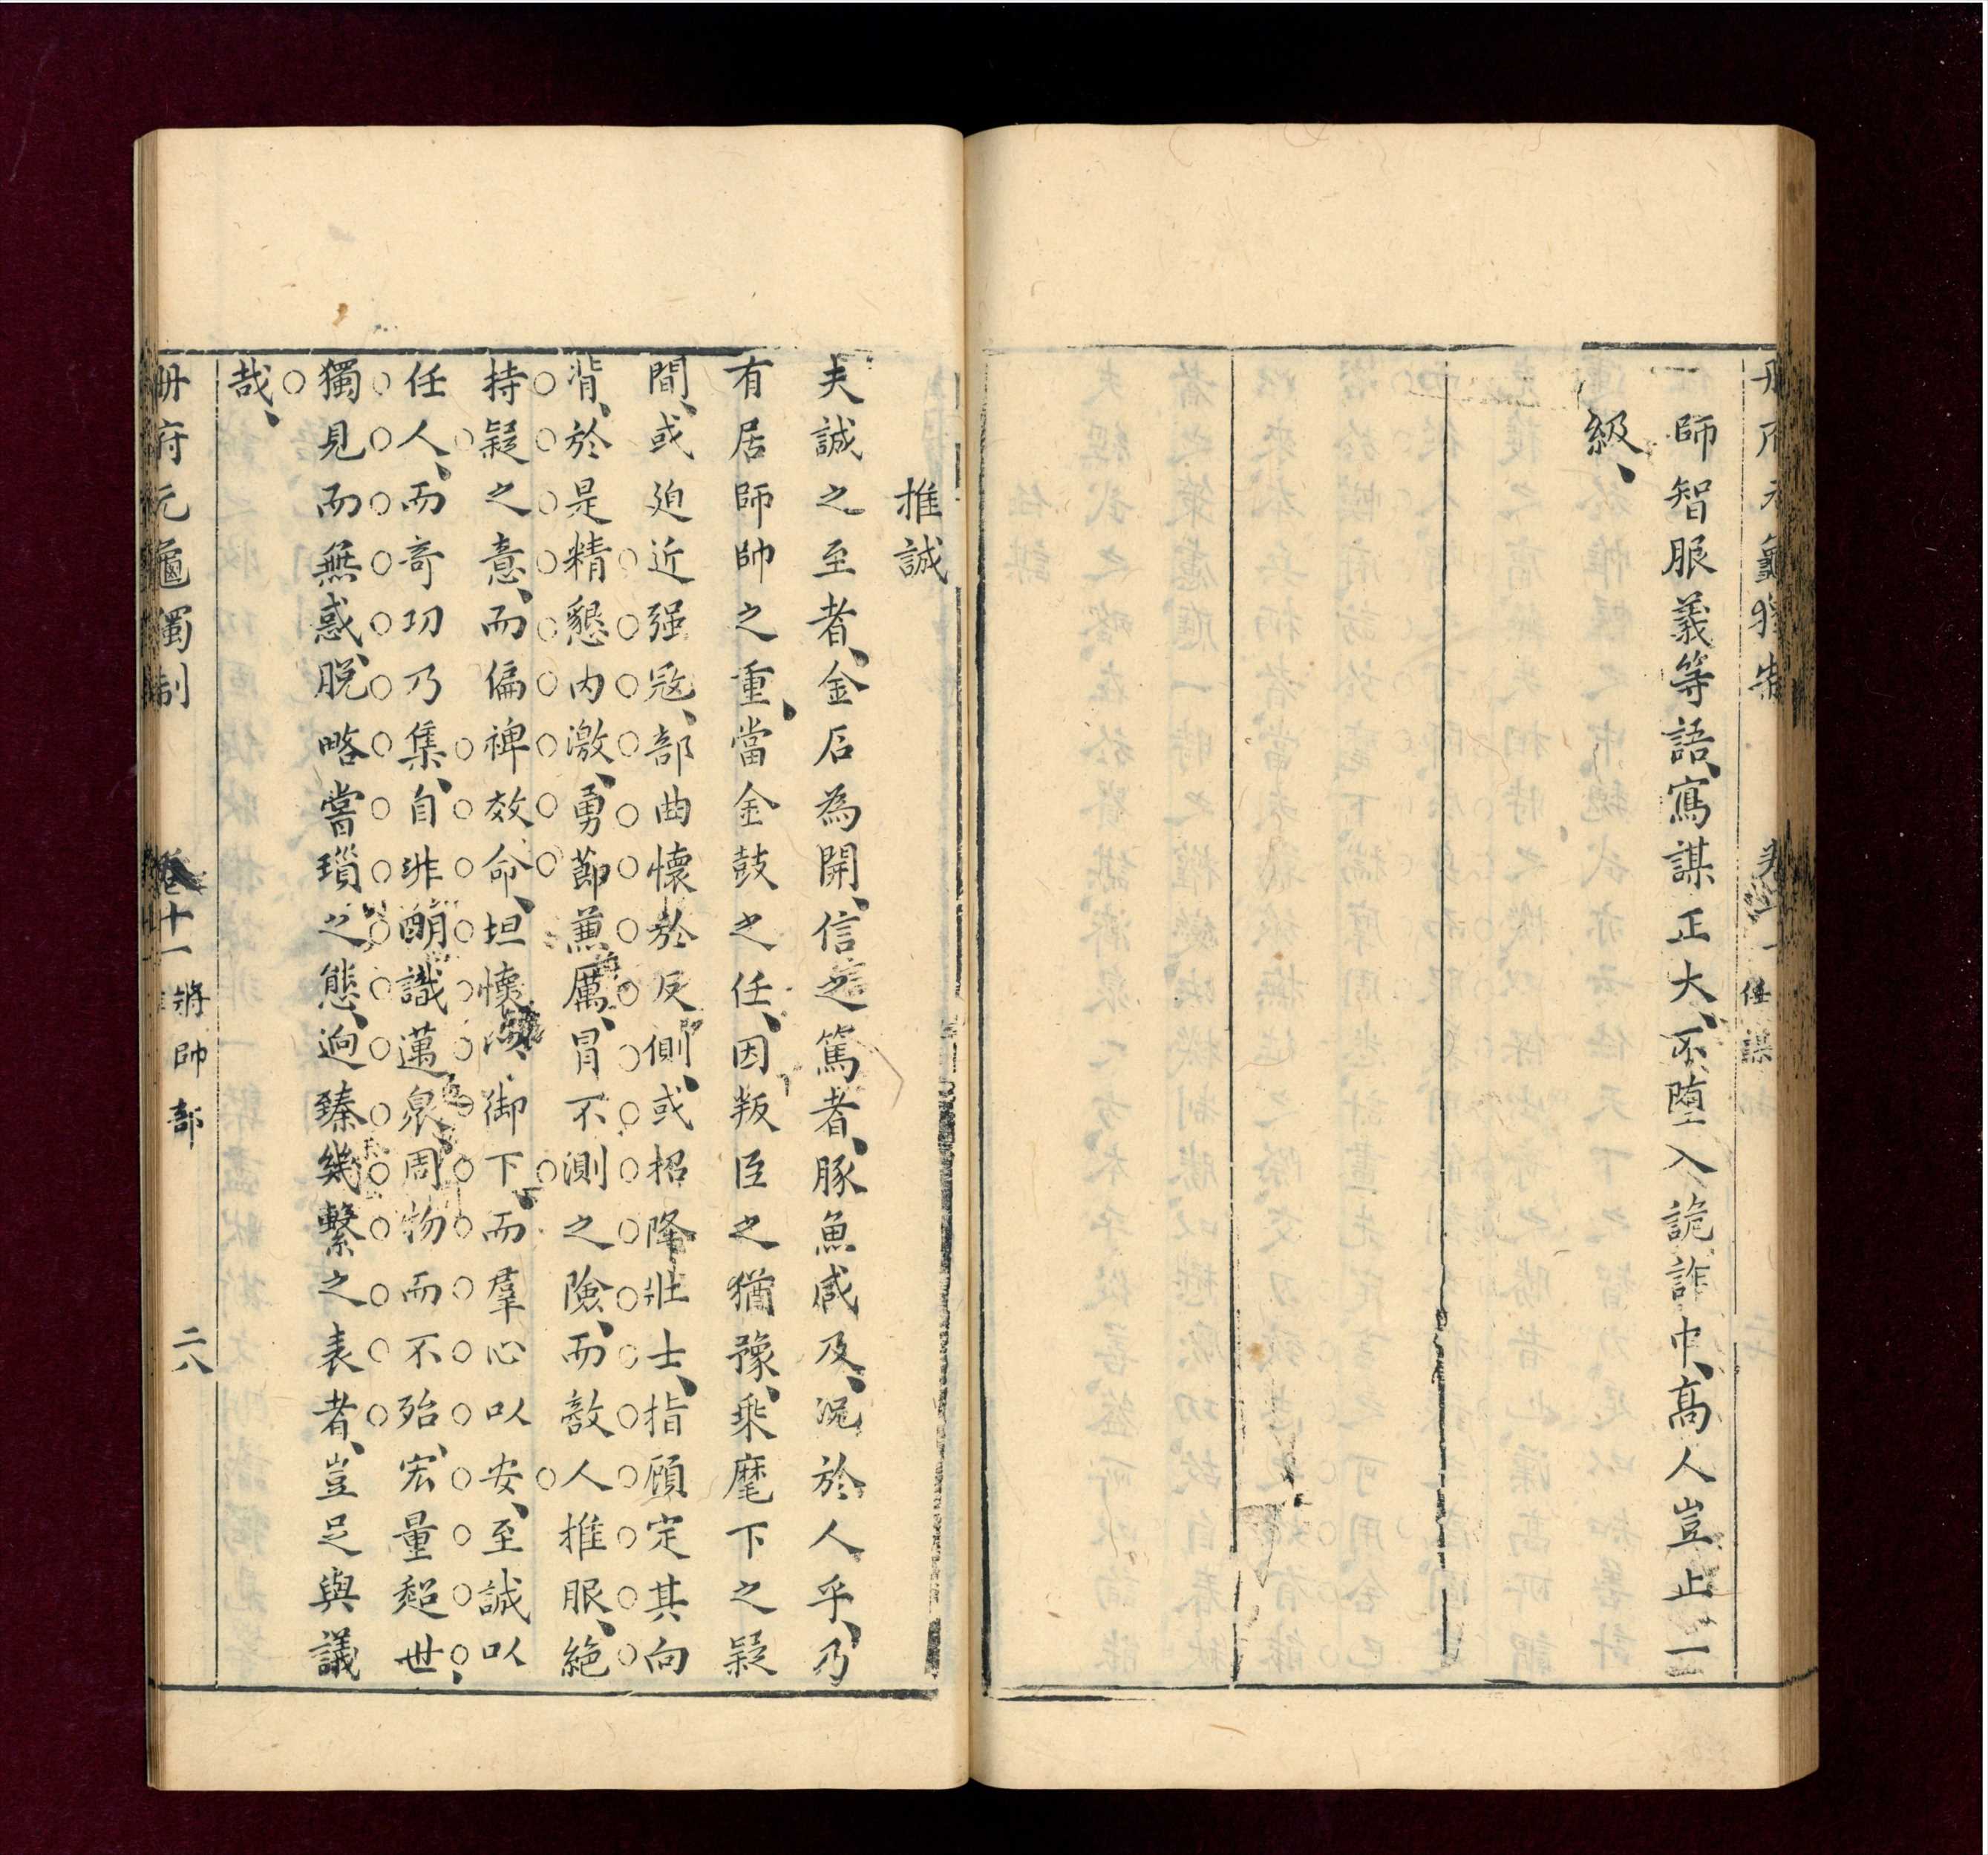 冊府元龜獨制
卷十一
任謀
師智服義等語、寓謀正大、不墮入詭詐中、高人豈止一
級、
推誠
夫誠之至者、金石為開、信之篤者、豚魚咸及、況於人乎、乃
有居師帥之重、當金鼓之任、因叛臣之猶豫、乘麾下之疑
間、或廹近强寇、部曲懷於反側、或招降壯士、指顧定其向
背、於是精懇内激、勇節兼厲、冒不測之險、而敵人推服、絕
持疑之意、而偏裨效命、坦懷以御下、而羣心以安、至誠以
任人、而奇功乃集、自非酭識邁衆、周物而不殆、宏量超世、
獨見而無惑、脫略嘗瑣之態、逈臻幾繫之表者、豈足與議
哉、
冊府元龜獨制
卷十一
將帥部
二八